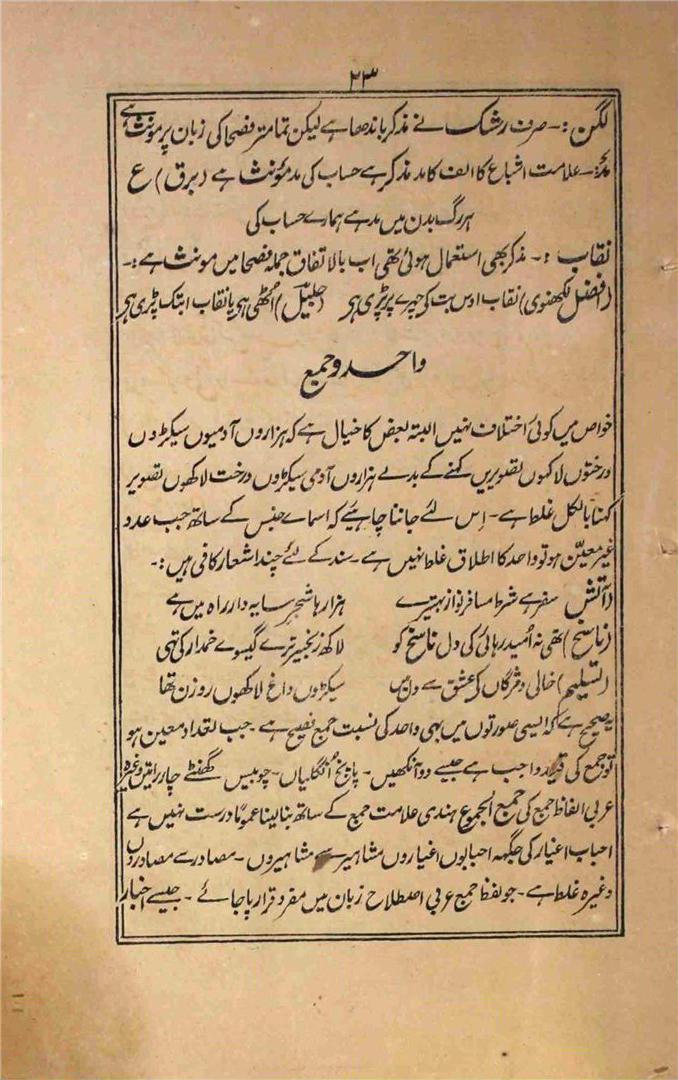 ۲۳
لگن :- صرف رشک نے مذکر باندھا ہے لیکن تمامتر فصحا کی زبان پر مونث ہے
مد :- علامت اشباع کا الف کا مد مذکر ہے حساب کی مد مؤنث ہے (برق) ع
ہر رگ بدن میں مد ہے ہمارے حساب کی
نقاب :- مذکر بھی استعمال ہوئی تھی اب بالاتفاق جملہ فصحا میں مونث ہے :-
(افضل لکھنوی) نقاب اوس بت کی چہرے پر پڑی ہی (جلیل) اُٹھی ہی یا نقاب ابتک پڑی ہی
واحد و جمع
خواص میں کوئی اختلاف نہیں البتہ بعض کا خیال ہے کہ ہزاروں آدمیوں سیکڑوں
درختوں لاکھوں تصویریں کہنے کے بدلے ہزاروں آدمی سیکڑوں درخت لاکھوں تصویر
کہنا بالکل غلط ہے ۔ اِس لئے جاننا چاہیئے کہ اسماے جنس کے ساتھ جب عدد
غیر معیّن ہو تو واحد کا اطلاق غلط نہیں ہے ۔ سند کے لئے چند اشعار کافی ہیں :-
(آتش سفر ہے شرط مسافر نواز بہتیرے ہزارہا شجر سایہ دار راہ میں ہے
(ناسخ) تھی نہ اُمید رہائی کی دل ناسخ کو لاکھ زنجیر ترے گیسوے خمدار کی تہی
(تسلیم) خالی و مژگاں کی عشق سے دل میں سیکڑوں داغ لاکھوں روزن تھا
یہ صحیح ہے کہ ایسی صورتوں میں بھی واحد کی نسبت جمع فصیح ہے ۔ جب تعداد معین ہو
تو جمع کی قید واجب ہے جیسے دو آنکھیں ۔ پانچ اُنگلیاں ۔ چوبیس گھنٹے چار راتیں وغیرہ
عربی الفاظ جمع کی جمیع الجموع ہندی علامت جمع کے ساتھ بنا لینا عموماً درست نہیں ہے
احباب اغیار کی جگہہ احبابوں اغیاروں مشاہیر سے مشاہیروں ۔ مصادر سے مصادروں
وغیرہ غلط ہے ۔ جو لفظ جمع عربی اصطلاح زبان میں مفرد قرار پا جائے ۔ جیسے اخبار